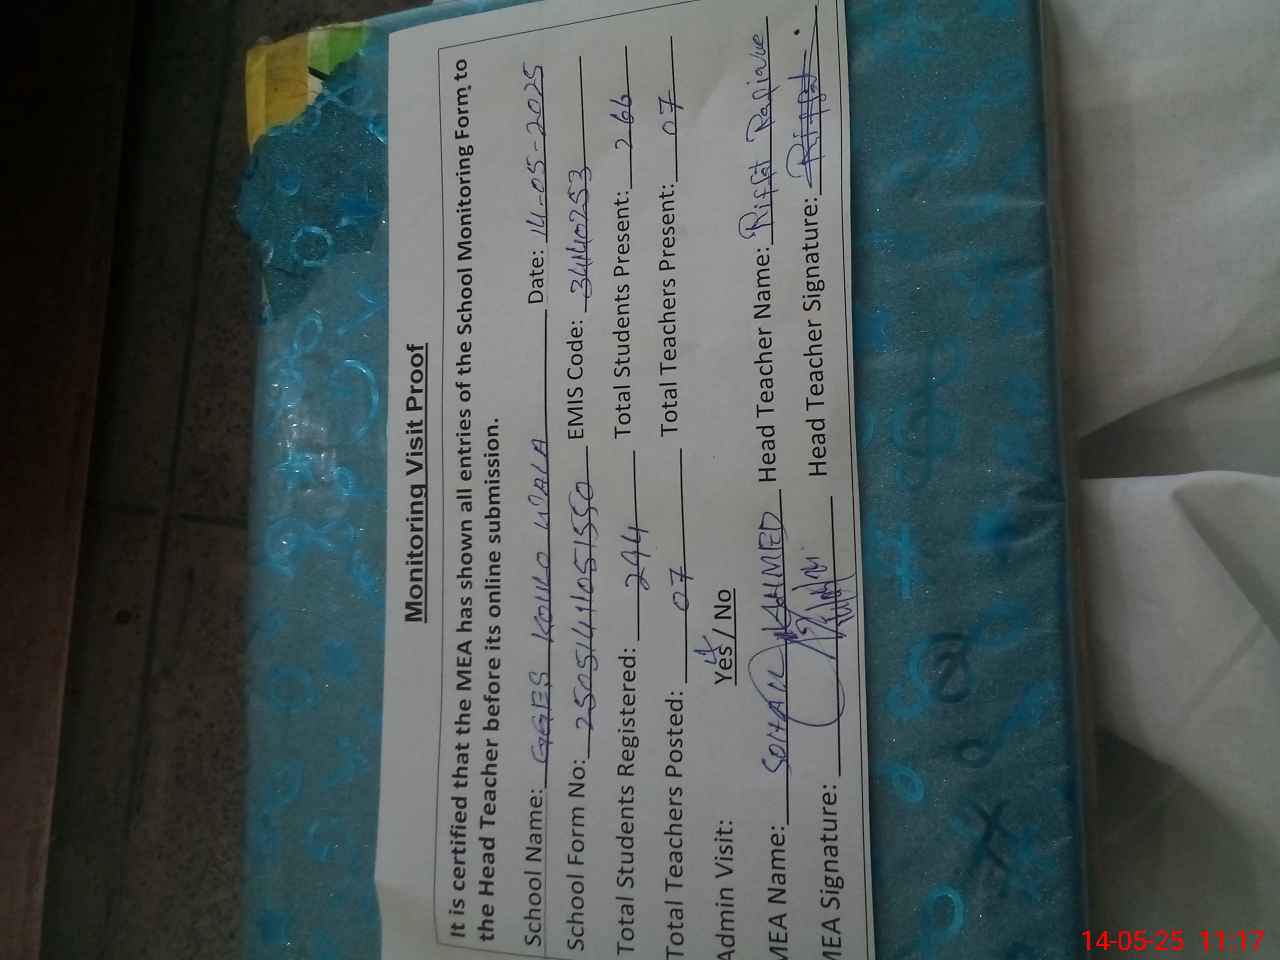 Monitoring Visit Proof
It is certified that the MEA has shown all entries of the School Monitoring Form to
the Head Teacher before its online submission.
School Name: GGES KOLKO WALA Date: 14-05-2025
School Form No: 25051441051550 EMIS Code: 34140253
Total Students Registered: 294 Total Students Present: 266
Total Teachers Posted: 07 Total Teachers Present: 07
Admin Visit: Yes / No
MEA Name: SOHAIL AHMED Head Teacher Name: Riffat Rafique
MEA Signature: Head Teacher Signature: Riffat
14-05-25 11:17